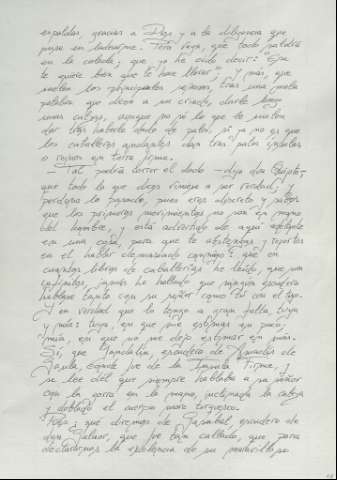 espaldas, gracias a Dios y a la diligencia que
puse en ladearme. Pero vaya, que todo saldrá
en la colada; que yo he oído decir: "Ese
te quiere bien que te hace llorar"; y más, que
suelen los principales señores, tras una mala
palabra que dicen a un criado, darle luego
unas calzas, aunque no sé lo que le suelen
dar tras haberle dado de palos, si ya no es que
los caballeros andantes dan tras palos ínsulas
o reinos en tierra firme.
– Tal podría correr el dado –dijo don Quijote–,
que todo lo que dices viniese a ser verdad; y
perdona lo pasado, pues eres discreto y sabes
que los primeros movimientos no son en mano
del hombre, y está advertido de aquí adelante
en una cosa, para que te abstengas y reportes
en el hablar demasiado conmigo: que en
cuantos libros de caballerías he leído, que son
infinitos, jamás he hallado que ningún escudero
hablase tanto con su señor como tú con el tuyo.
Y en verdad que lo tengo a gran falta, tuya
y mía: tuya, en que me estimas en poco;
mía, en que no me dejo estimar en más.
Sí, que Gandalín, escudero de Amadís de
Gaula, conde fue de la Ínsula Firme, y
se lee dél que siempre hablaba a su señor
con la gorra en la mano, inclinada la cabeza
y doblado el cuerpo more turquesco.
Pues, ¿qué diremos de Gasabal, escudero de
don Galaor, que fue tan callado, que para
declararnos la excelencia de su maravilloso